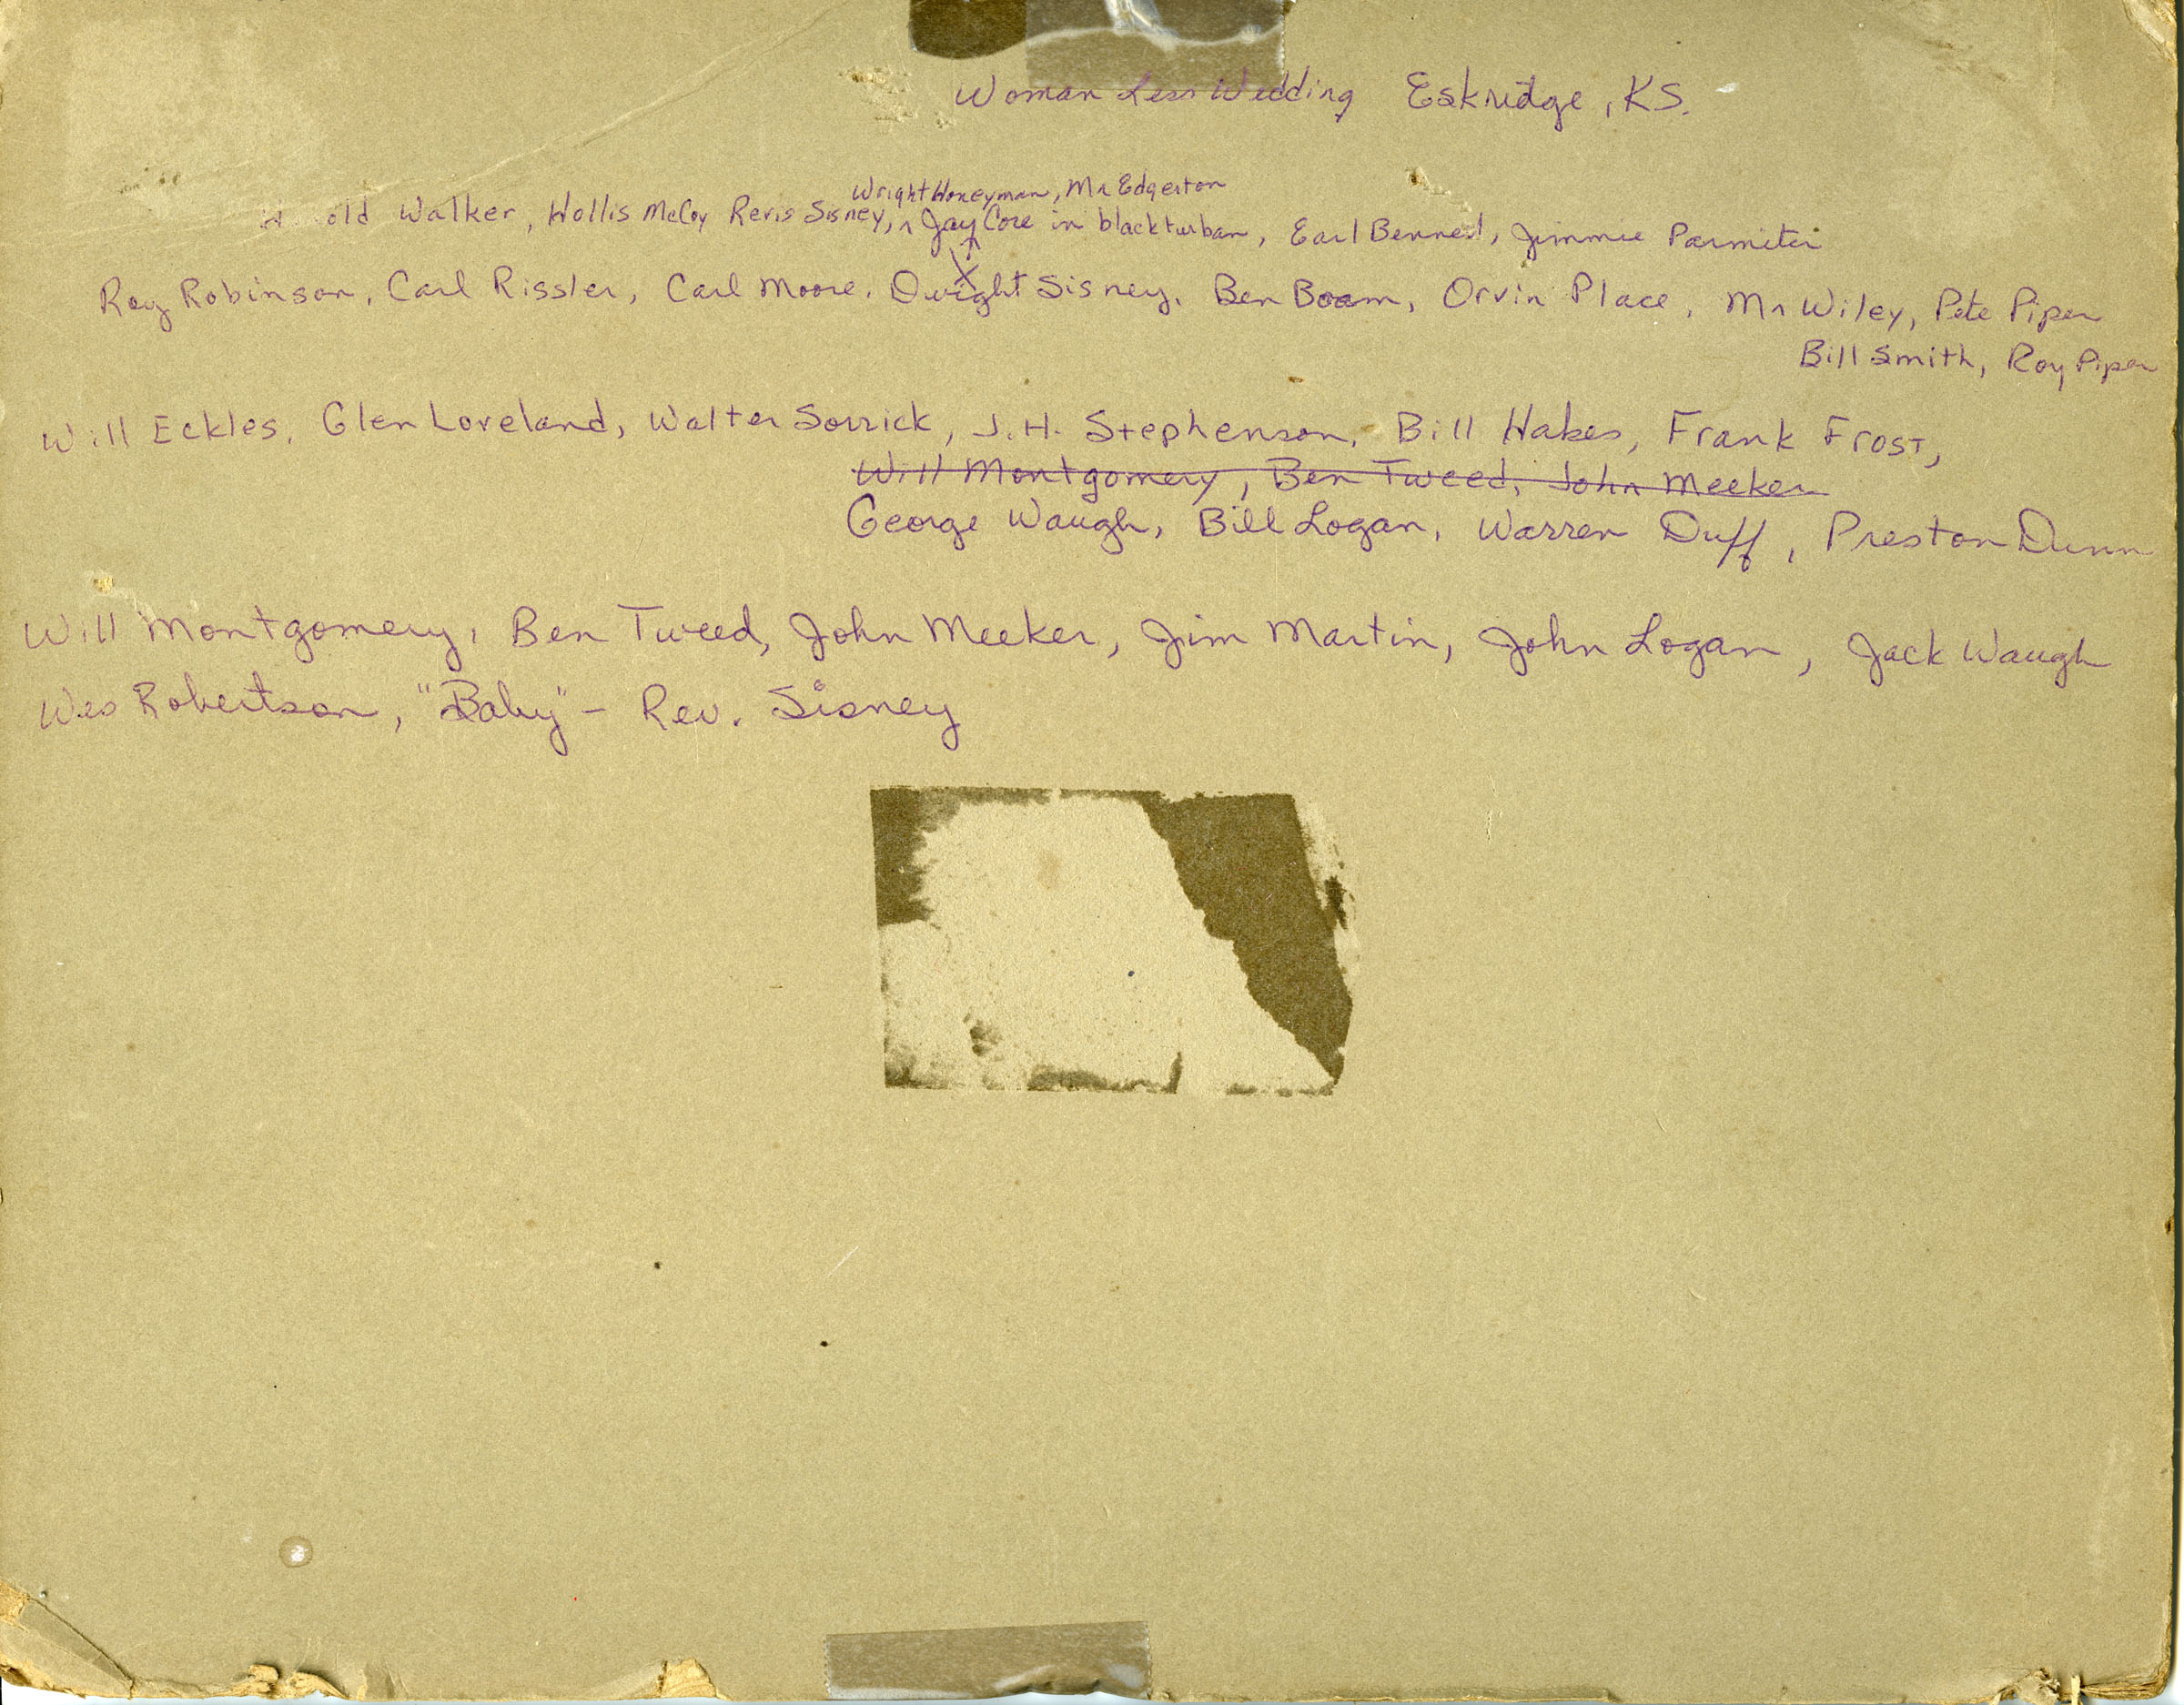 Woman Less Wedding Eskridge, KS.
Wright Honeyman, Mr Edgerton
Harold Walker, Hollis McCoy Revis Sisney, ^ Jay Core in black turban, Earl Bennet, Jimmie Parmiter
Roy Robinson, Carl Rissler, Carl Moore, Dwight Sisney, Ben Boam, Orvin Place, Mr Wiley, Pete Piper
Bill Smith, Roy Piper
Will Eckles, Glen Loveland, Walter Sorrick, J.H. Stephenson, Bill Hakes, Frank Frost,
Will Montgomery, Ben Tweed, John Meeker
George Waugh, Bill Logan, Warren Duff, Preston Dunn
Will Montgomery, Ben Tweed, John Meeker, Jim Martin, John Logan, Jack Waugh
Wes Robertson, "Baby" - Rev. Sisney